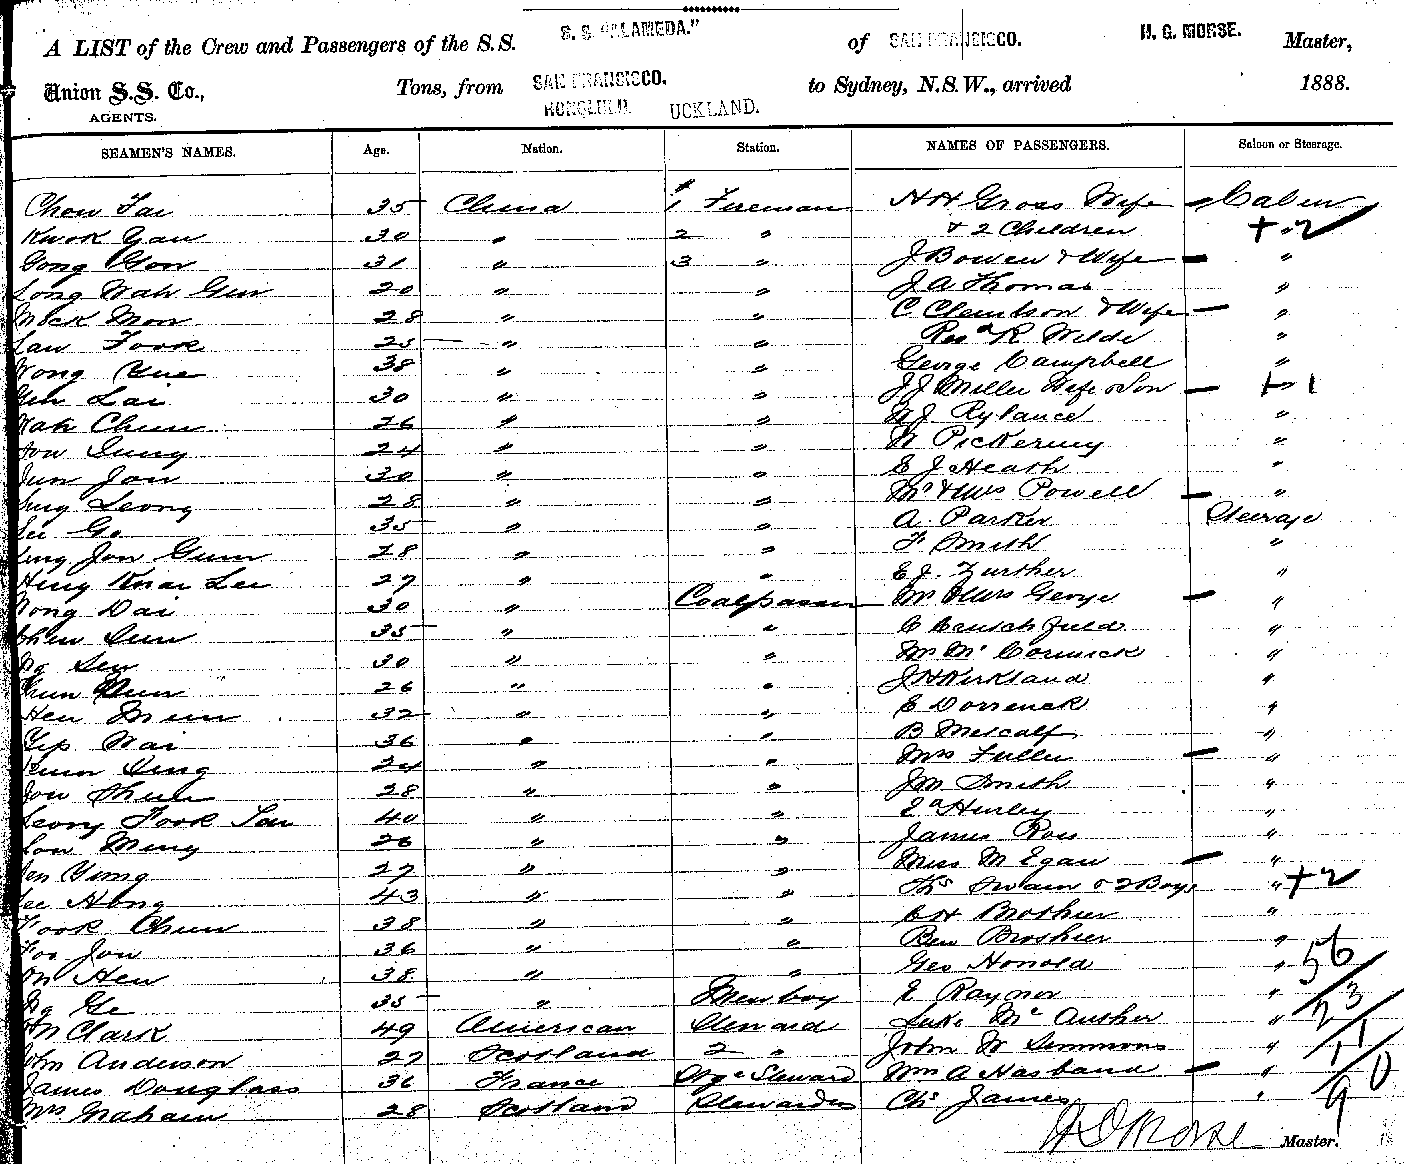 S. S. "ALAMEDA." H. G. MORSE.
A LIST of the Crew and Passengers of the S.S. of SAN FRANCISCO. Master,
Union S.S. Co., Tons, from SAN FRANCISCO. to Sydney, N.S.W., arrived 1888.
AGENTS. HONOLULU. UCKLAND.
SEAMEN'S NAMES. Age. Nation. Station. NAMES OF PASSENGERS. Saloon or Steerage.
Chow Tai 35 China 1 Fireman H H Gross Wife Cabin
Kwok Yau 30 " 2 " & 2 Children + " 2
Gong Gon 31 " 3 " J Bowen & Wife "
Long Wah Gun 20 " " J A Thomas "
Mock Mon 28 " " C Clemtson & Wife "
Law Fook 25 " " R Wilde "
Wong Yue 38 " " George Campbell "
Gun Lai 30 " " J J Miller Wife & Son + 1
Wah Chun 26 " " W J Rylance "
Sung 24 " " W Pickering "
Jun Jon 30 " " E J Heath "
Leong 28 " " Mr & Mrs Powell "
Lee Ge 35 " " A. Parker Steerage
Jon Gum 28 " " F Smith "
Hing Kwai Lee 27 " " E J. Zurcher "
Wong Dai 30 " Coalpasser Mr & Mrs George "
Chew Sun 35 " " "
Ng Sew 30 " " Mr McCormick "
26 " " J H Kirkland "
Hen Mun 32 " " E Dorrenck "
Yip Wai 36 " " B Metcalf "
Sing 24 " " Mrs Fuller "
Jow Shun 28 " " J M Smith "
Leong Fook Sau 40 " " E A Hurley "
Low Ming 26 " " James Ross "
Yung 27 " " Miss M Egan "
Lee Hong 43 " " Thos Swain & 2 Boys " + 2
Fook Chun 38 " " C H Broshier "
Foo Jon 36 " " Ben Broshier " 56
Hen 38 " " Geo Honold "
Ng Ge 35 " Messboy E Raynor " 23
Wm Clark 49 American Steward Luke Mc "
John Anderson 27 Scotland 2 " John W Simmons " 11
James Douglass 36 France Steward Wm A Hasband "
Mrs Graham 28 Scotland Stewardess Chs James " 90
H G Morse Master.